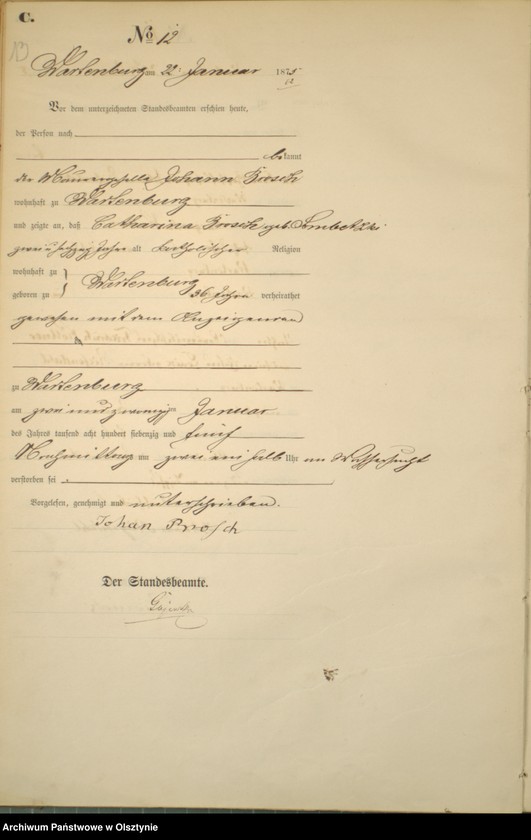 C.
13
No 12
Wartenburg am 22. Januar 1875
Vor dem unterzeichneten Standesbeamten erschien heute,
der Person nach
bekannt
der Maurergeselle Johann Brosch
wohnhaft zu Wartenburg
und zeigte an, daß Catharina Brosch geb.
zwei u sechzig Jahre alt katholischer Religion
wohnhaft zu
geboren zu Wartenburg 36 Jahre verheirathet
gewesen mit dem Anzeigenden
zu Wartenburg
am zwei und zwanzigsten Januar
des Jahres tausend acht hundert siebenzig und fünf
Nachmittag um zwei ein halb Uhr an Wassersucht
verstorben sei
Vorgelesen, genehmigt und unterschrieben.
Johan Brosch
Der Standesbeamte.
Archiwum Państwowe w Olsztynie